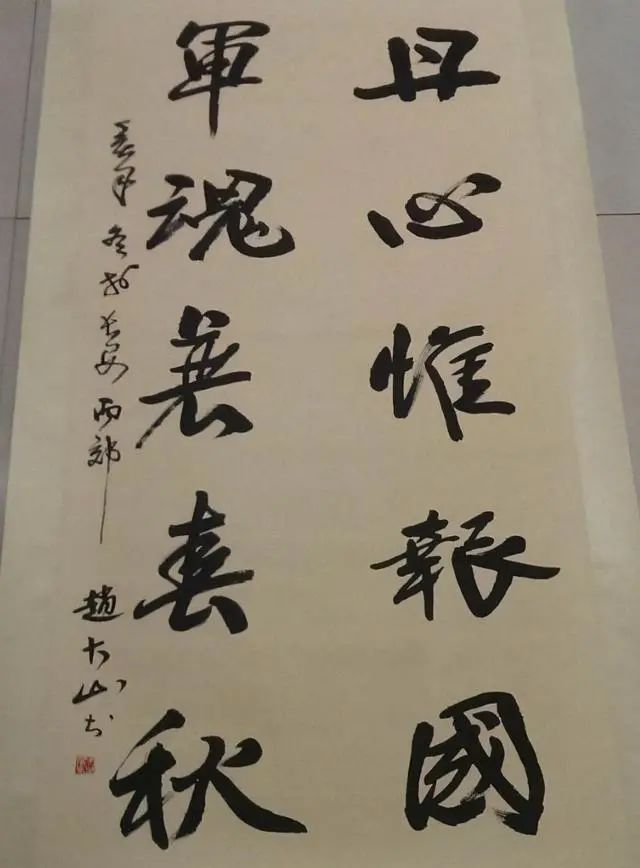 丹心惟報國
軍魂春秋
年冬於長安西郊
趙大山書